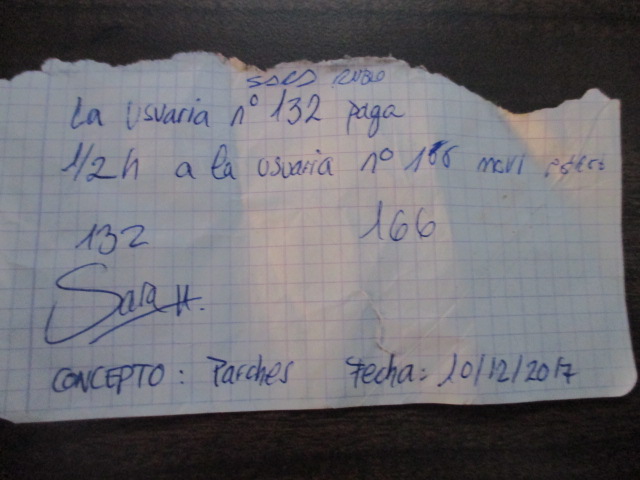 SARA RUBIO
La usuaria nº 132 paga
1/2h a la usuaria nº 166 mari
132 166
Sara H.
CONCEPTO: Parches Fecha: 20/12/2017